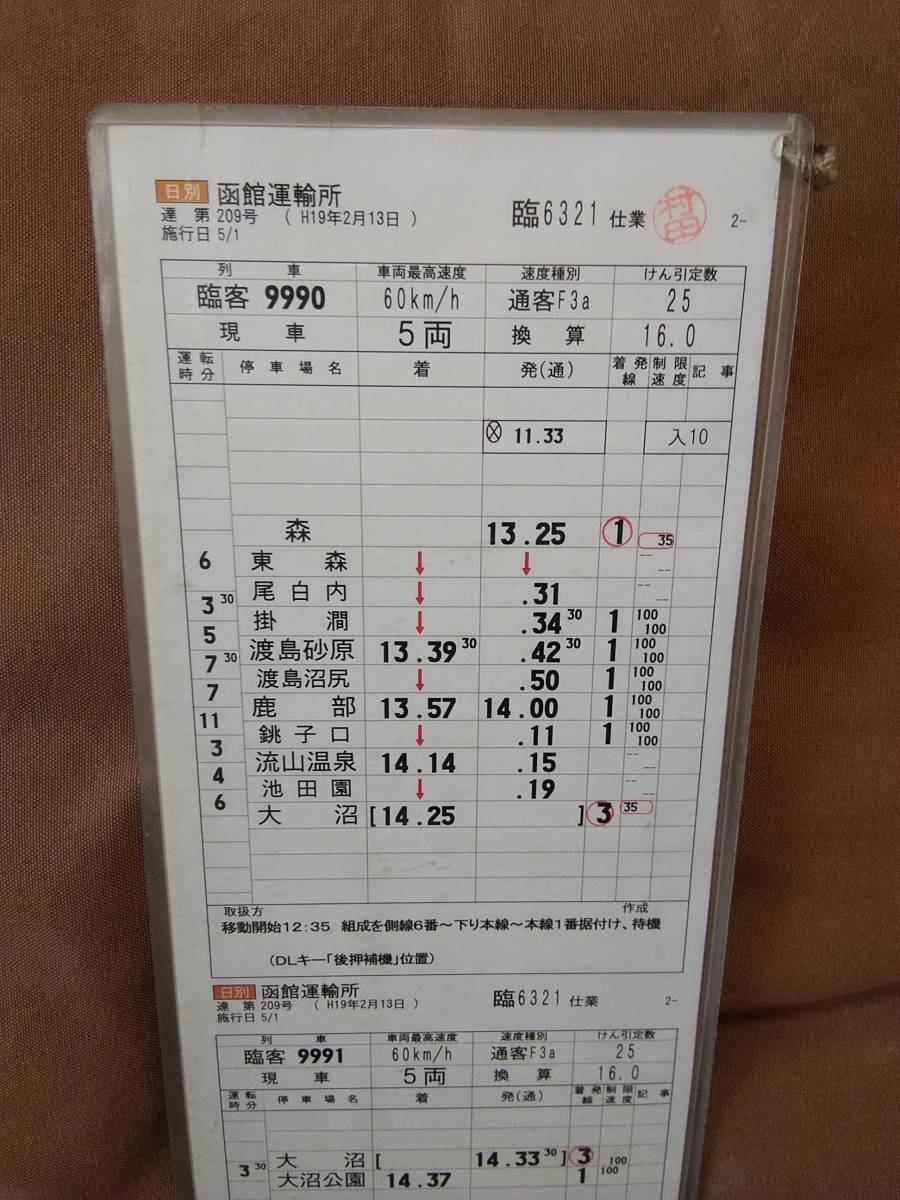 日別 函館運輸所
達 第 209号 ( H19年2月13日 ) 臨6321 仕業 村田 2-
施行日 5/1
列 車 車両最高速度 速度種別 けん引定数
臨客 9990 60km/h 通客F3a 25
現 車 5両 換 算 16.0
運転時分 停車場名 着 発(通) 着発線 制限速度 記事
⊗ 11.33 入10
森 13.25 1 35
6 東 森 ↓ ↓ -- --
尾白内 ↓ .31 -- --
3 30 掛 澗 ↓ .34 30 1 100 100
5 渡島砂原 13.39 30 .42 30 1 100 100
7 30 渡島沼尻 ↓ .50 1 100 100
7 鹿 部 13.57 14.00 1 100 100
11 銚子口 ↓ .11 1 100 100
3 流山温泉 14.14 .15 -- --
4 池田園 ↓ .19 -- --
6 大 沼 [14.25 ] 3 35
取扱方 作成
移動開始12:35 組成を側線6番~下り本線~本線1番据付け、待機
(DLキー「後押補機」位置)
日別 函館運輸所
達 第 209号 ( H19年2月13日 ) 臨6321 仕業 2-
施行日 5/1
列 車 車両最高速度 速度種別 けん引定数
臨客 9991 60km/h 通客F3a 25
現 車 5両 換 算 16.0
運転時分 停車場名 着 発(通) 着発線 制限速度 記事
大 沼 [ 14.33 30 ] 3 100
3 30 大沼公園 14.37 1 100